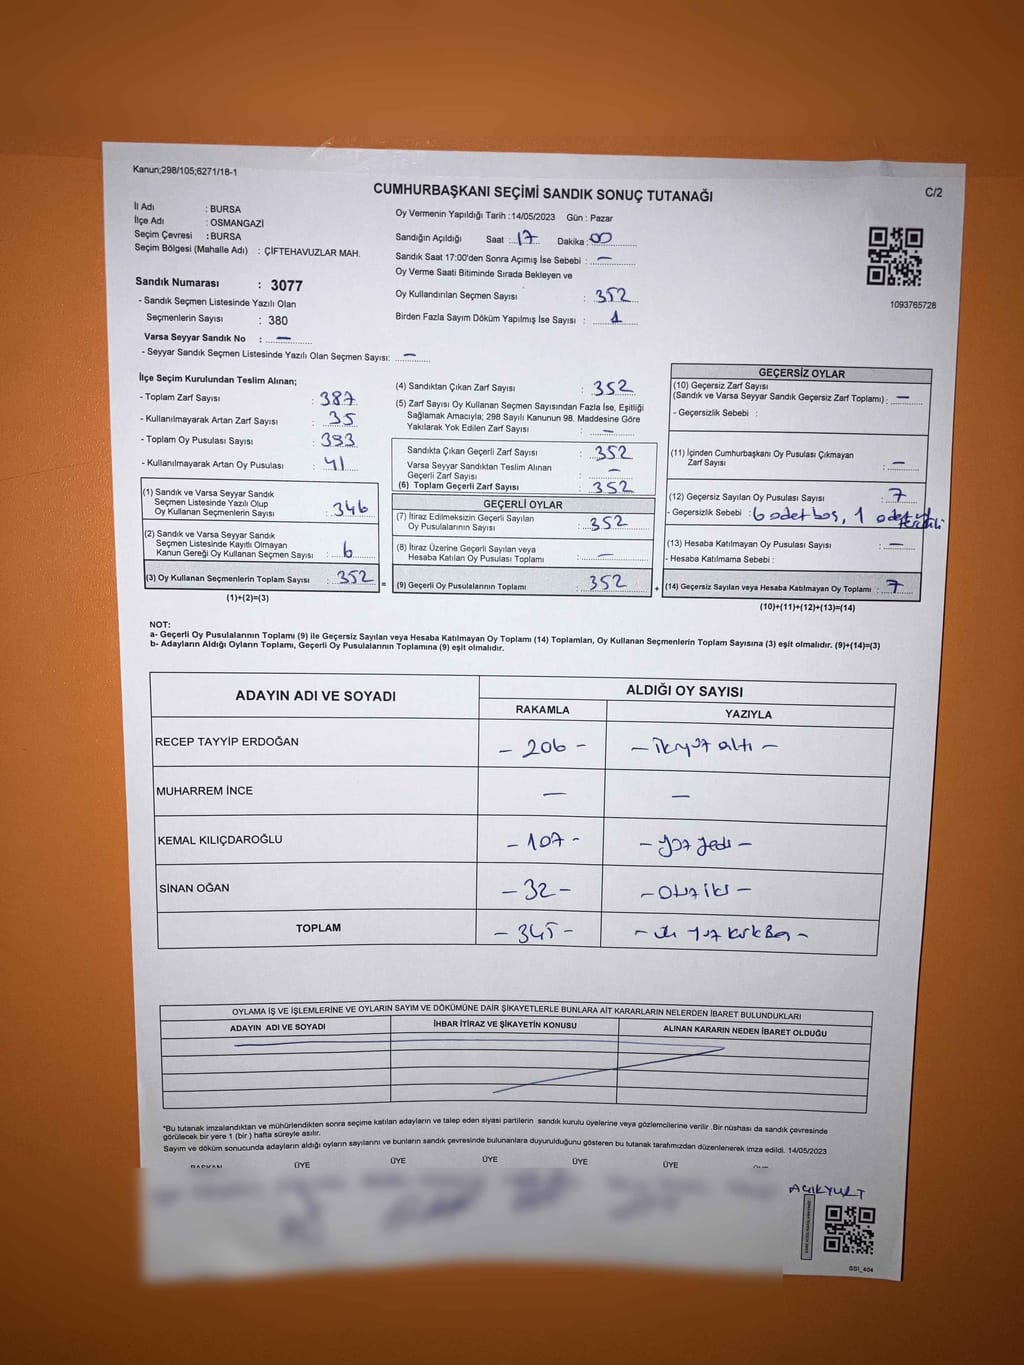 Kanun;298/105;6271/18-1
CUMHURBAŞKANI SEÇİMİ SANDIK SONUÇ TUTANAĞI
C/2
İl Adı : BURSA
İlçe Adı : OSMANGAZİ
Seçim Çevresi : BURSA
Seçim Bölgesi (Mahalle Adı) : ÇİFTEHAVUZLAR MAH.
Sandık Numarası : 3077
- Sandık Seçmen Listesinde Yazılı Olan
Seçmenlerin Sayısı : 380
Varsa Seyyar Sandık No : —
- Seyyar Sandık Seçmen Listesinde Yazılı Olan Seçmen Sayısı: —
Oy Vermenin Yapıldığı Tarih :14/05/2023 Gün : Pazar
Sandığın Açıldığı Saat : 17 Dakika : 00
Sandık Saat 17:00'den Sonra Açımış İse Sebebi : —
Oy Verme Saati Bitiminde Sırada Bekleyen ve
Oy Kullandırılan Seçmen Sayısı : 352
Birden Fazla Sayım Döküm Yapılmış İse Sayısı : 1
1093765728
İlçe Seçim Kurulundan Teslim Alınan;
- Toplam Zarf Sayısı : 387
- Kullanılmayarak Artan Zarf Sayısı : 35
- Toplam Oy Pusulası Sayısı : 393
- Kullanılmayarak Artan Oy Pusulası : 41
(1) Sandık ve Varsa Seyyar Sandık
Seçmen Listesinde Yazılı Olup
Oy Kullanan Seçmenlerin Sayısı : 346
(2) Sandık ve Varsa Seyyar Sandık
Seçmen Listesinde Kayıtlı Olmayan
Kanun Gereği Oy Kullanan Seçmen Sayısı : 6
(3) Oy Kullanan Seçmenlerin Toplam Sayısı : 352 =
(1)+(2)=(3)
(4) Sandıktan Çıkan Zarf Sayısı : 352
(5) Zarf Sayısı Oy Kullanan Seçmen Sayısından Fazla İse, Eşitliği
Sağlamak Amacıyla; 298 Sayılı Kanunun 98. Maddesine Göre
Yakılarak Yok Edilen Zarf Sayısı : —
Sandıkta Çıkan Geçerli Zarf Sayısı : 352
Varsa Seyyar Sandıktan Teslim Alınan
Geçerli Zarf Sayısı : —
(6) Toplam Geçerli Zarf Sayısı : 352
GEÇERLİ OYLAR
(7) İtiraz Edilmeksizin Geçerli Sayılan
Oy Pusulalarının Sayısı : 352
(8) İtiraz Üzerine Geçerli Sayılan veya
Hesaba Katılan Oy Pusulası Toplamı : —
(9) Geçerli Oy Pusulalarının Toplamı : 352 +
GEÇERSİZ OYLAR
(10) Geçersiz Zarf Sayısı
(Sandık ve Varsa Seyyar Sandık Geçersiz Zarf Toplamı) : —
- Geçersizlik Sebebi :
(11) İçinden Cumhurbaşkanı Oy Pusulası Çıkmayan
Zarf Sayısı : —
(12) Geçersiz Sayılan Oy Pusulası Sayısı : 7
- Geçersizlik Sebebi : 6 adet boş, 1 adet
(13) Hesaba Katılmayan Oy Pusulası Sayısı : —
- Hesaba Katılmama Sebebi :
(14) Geçersiz Sayılan veya Hesaba Katılmayan Oy Toplamı : 7
(10)+(11)+(12)+(13)=(14)
NOT:
a- Geçerli Oy Pusulalarının Toplamı (9) ile Geçersiz Sayılan veya Hesaba Katılmayan Oy Toplamı (14) Toplamları, Oy Kullanan Seçmenlerin Toplam Sayısına (3) eşit olmalıdır. (9)+(14)=(3)
b- Adayların Aldığı Oyların Toplamı, Geçerli Oy Pusulalarının Toplamına (9) eşit olmalıdır.
ADAYIN ADI VE SOYADI
ALDIĞI OY SAYISI
RAKAMLA YAZIYLA
RECEP TAYYİP ERDOĞAN - 206 - - ikiyüz altı -
MUHARREM İNCE — —
KEMAL KILIÇDAROĞLU - 107 - - yüz yedi -
SİNAN OĞAN - 32 - - Otuz iki -
TOPLAM - 345 - - üç yüz kırk Beş -
OYLAMA İŞ VE İŞLEMLERİNE VE OYLARIN SAYIM VE DÖKÜMÜNE DAİR ŞİKAYETLERLE BUNLARA AİT KARARLARIN NELERDEN İBARET BULUNDUKLARI
ADAYIN ADI VE SOYADI İHBAR İTİRAZ VE ŞİKAYETİN KONUSU ALINAN KARARIN NEDEN İBARET OLDUĞU
*Bu tutanak imzalandıktan ve mühürlendikten sonra seçime katılan adayların ve talep eden siyasi partilerin sandık kurulu üyelerine veya gözlemcilerine verilir .Bir nüshası da sandık çevresinde
görülecek bir yere 1 (bir ) hafta süreyle asılır.
Sayım ve döküm sonucunda adayların aldığı oyların sayılarını ve bunların sandık çevresinde bulunanlara duyurulduğunu gösteren bu tutanak tarafımızdan düzenlenerek imza edildi. 14/05/2023
BAŞKAN ÜYE ÜYE ÜYE ÜYE ÜYE
AÇIKYURT